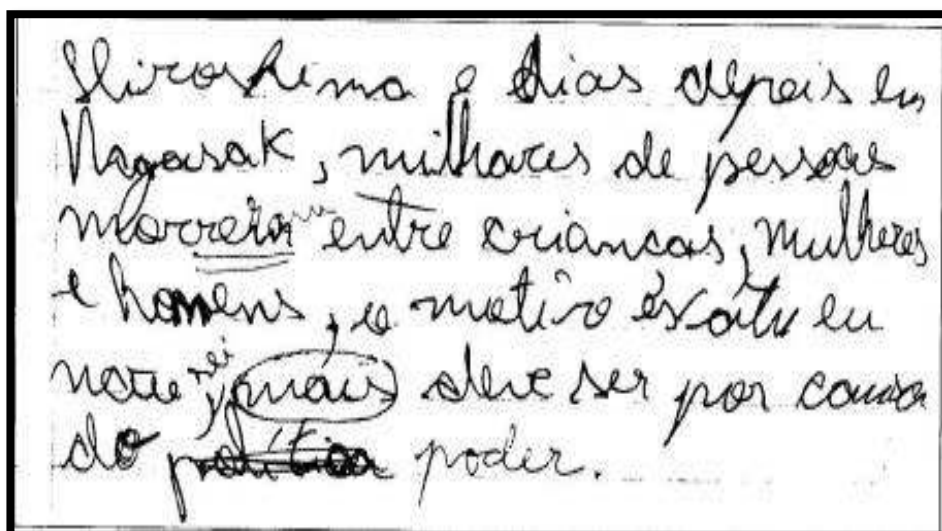 Hiroshima e dias depois em
Nagasak, milhares de pessoas
entre criancas, mulheres
e homens, o motivo exatu eu
sei, mais deve ser por causa
do poder.